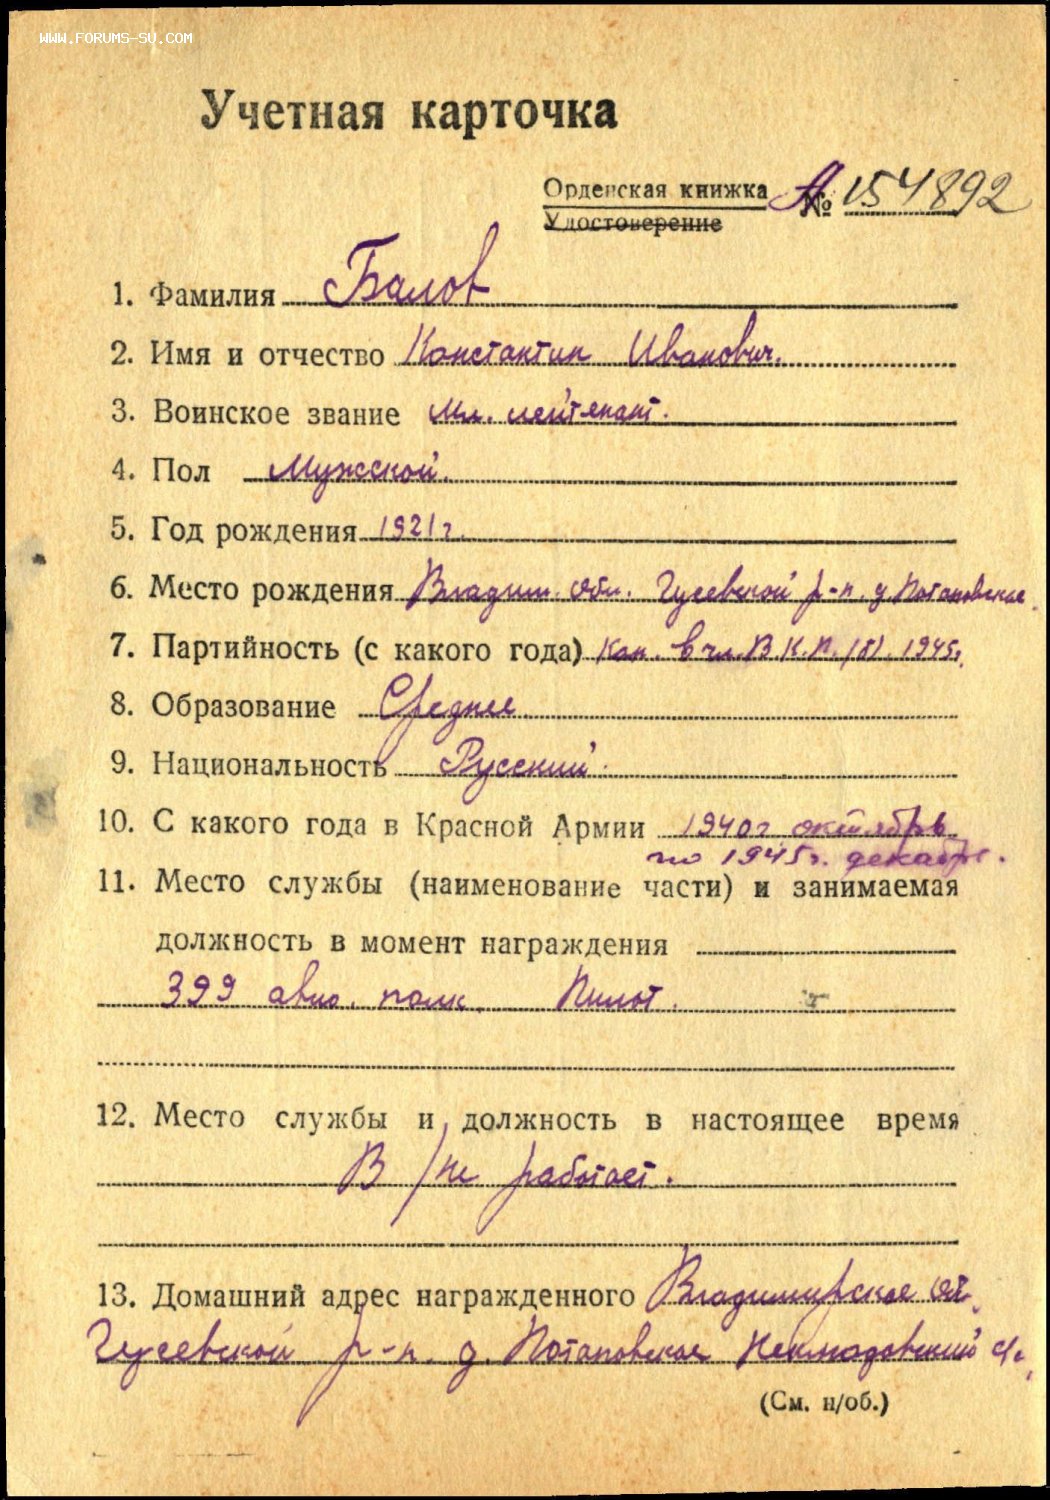 WWW.FORUMS-SU.COM
Учетная карточка
Орденская книжка А № 154892
Удостоверение
1. Фамилия Балов
2. Имя и отчество Константин Иванович.
3. Воинское звание мл. лейтенант.
4. Пол Мужской.
5. Год рождения 1921 г.
6. Место рождения Владим. обл. Гусевской р-н. д. Потаповское.
7. Партийность (с какого года) Кан. в чл. В.К.П.(б). 1945 г.
8. Образование Среднее
9. Национальность Русский.
10. С какого года в Красной Армии 1940 г октябрь
по 1945 г. декабрь.
11. Место службы (наименование части) и занимаемая
должность в момент награждения
399 авио. полк. Пилот.
12. Место службы и должность в настоящее время
В/не работает.
13. Домашний адрес награжденного Владимирское об.
Гусевской р-н. д. Потаповское Неклюдовский с/с.
(См. н/об.)